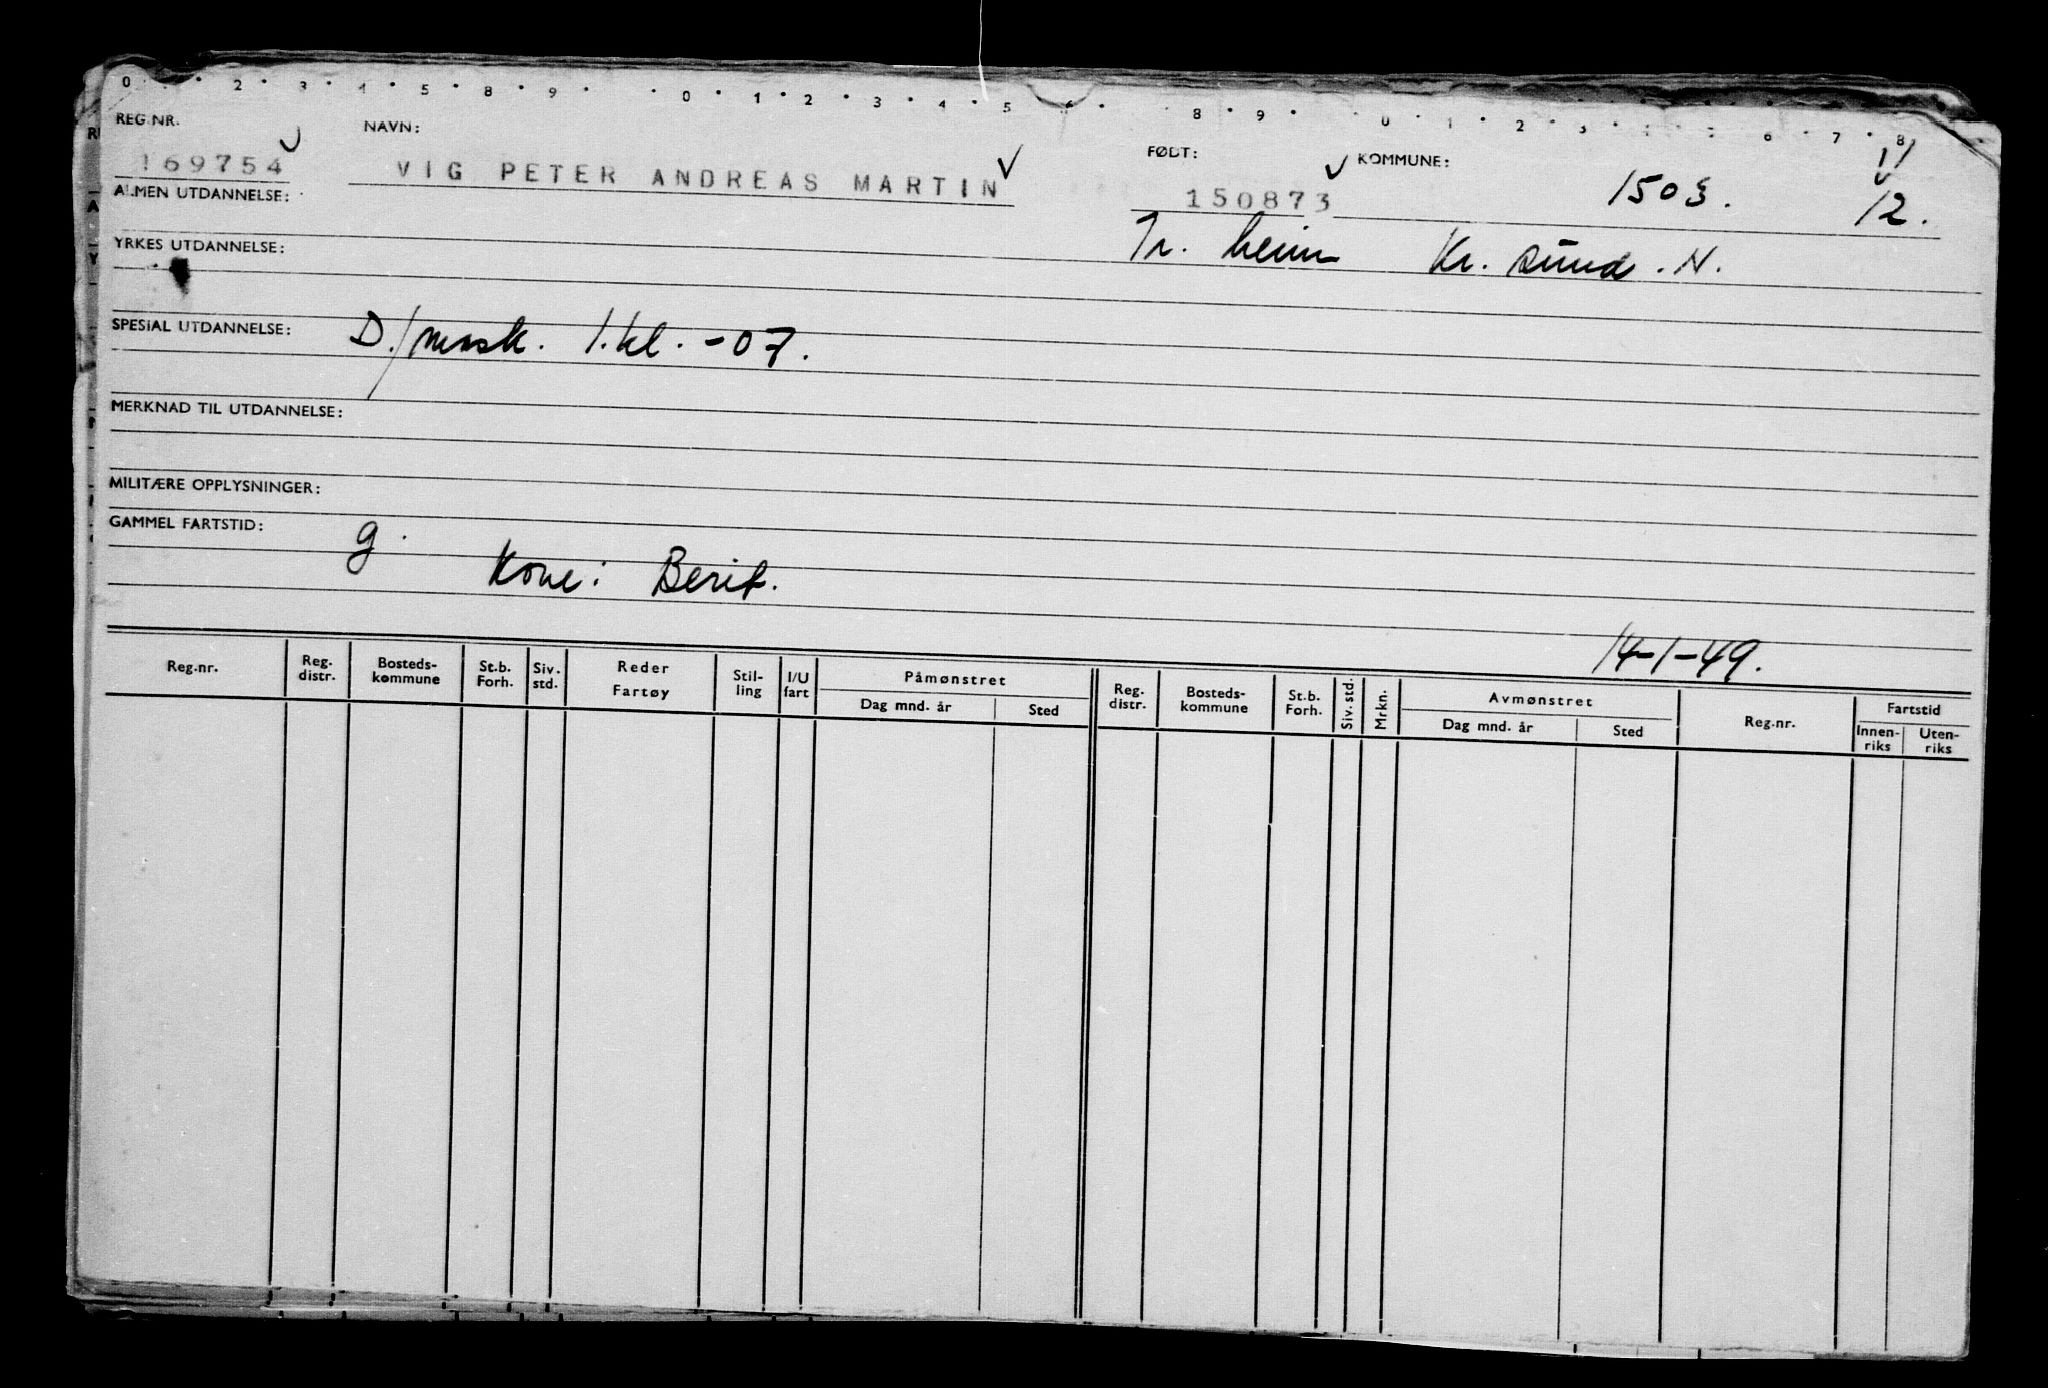 0 2 3 4 5 8 9 0 1 2 3 4 5 8 9 0 1 2 3 6 7 8
REG.NR. NAVN: FØDT: KOMMUNE:
169754 VIG PETER ANDREAS MARTIN 150873 1503. 12.
ALMEN UTDANNELSE:
Tr. heim Kr. sund. N.
YRKES UTDANNELSE:
SPESIAL UTDANNELSE: D./mask. 1. kl. -07.
MERKNAD TIL UTDANNELSE:
MILITÆRE OPPLYSNINGER:
GAMMEL FARTSTID: g.
Kone: Berit.
14-1-49.
Reg.nr. Reg. distr. Bosteds-kommune St.b. Forh. Siv. std. Reder Fartøy Stil-ling I/U fart Påmønstret Dag mnd. år Sted Reg. distr. Bosteds-kommune St.b. Forh. Siv. std. Mrkn. Avmønstret Dag mnd. år Sted Reg.nr. Fartstid Innen-riks Uten-riks